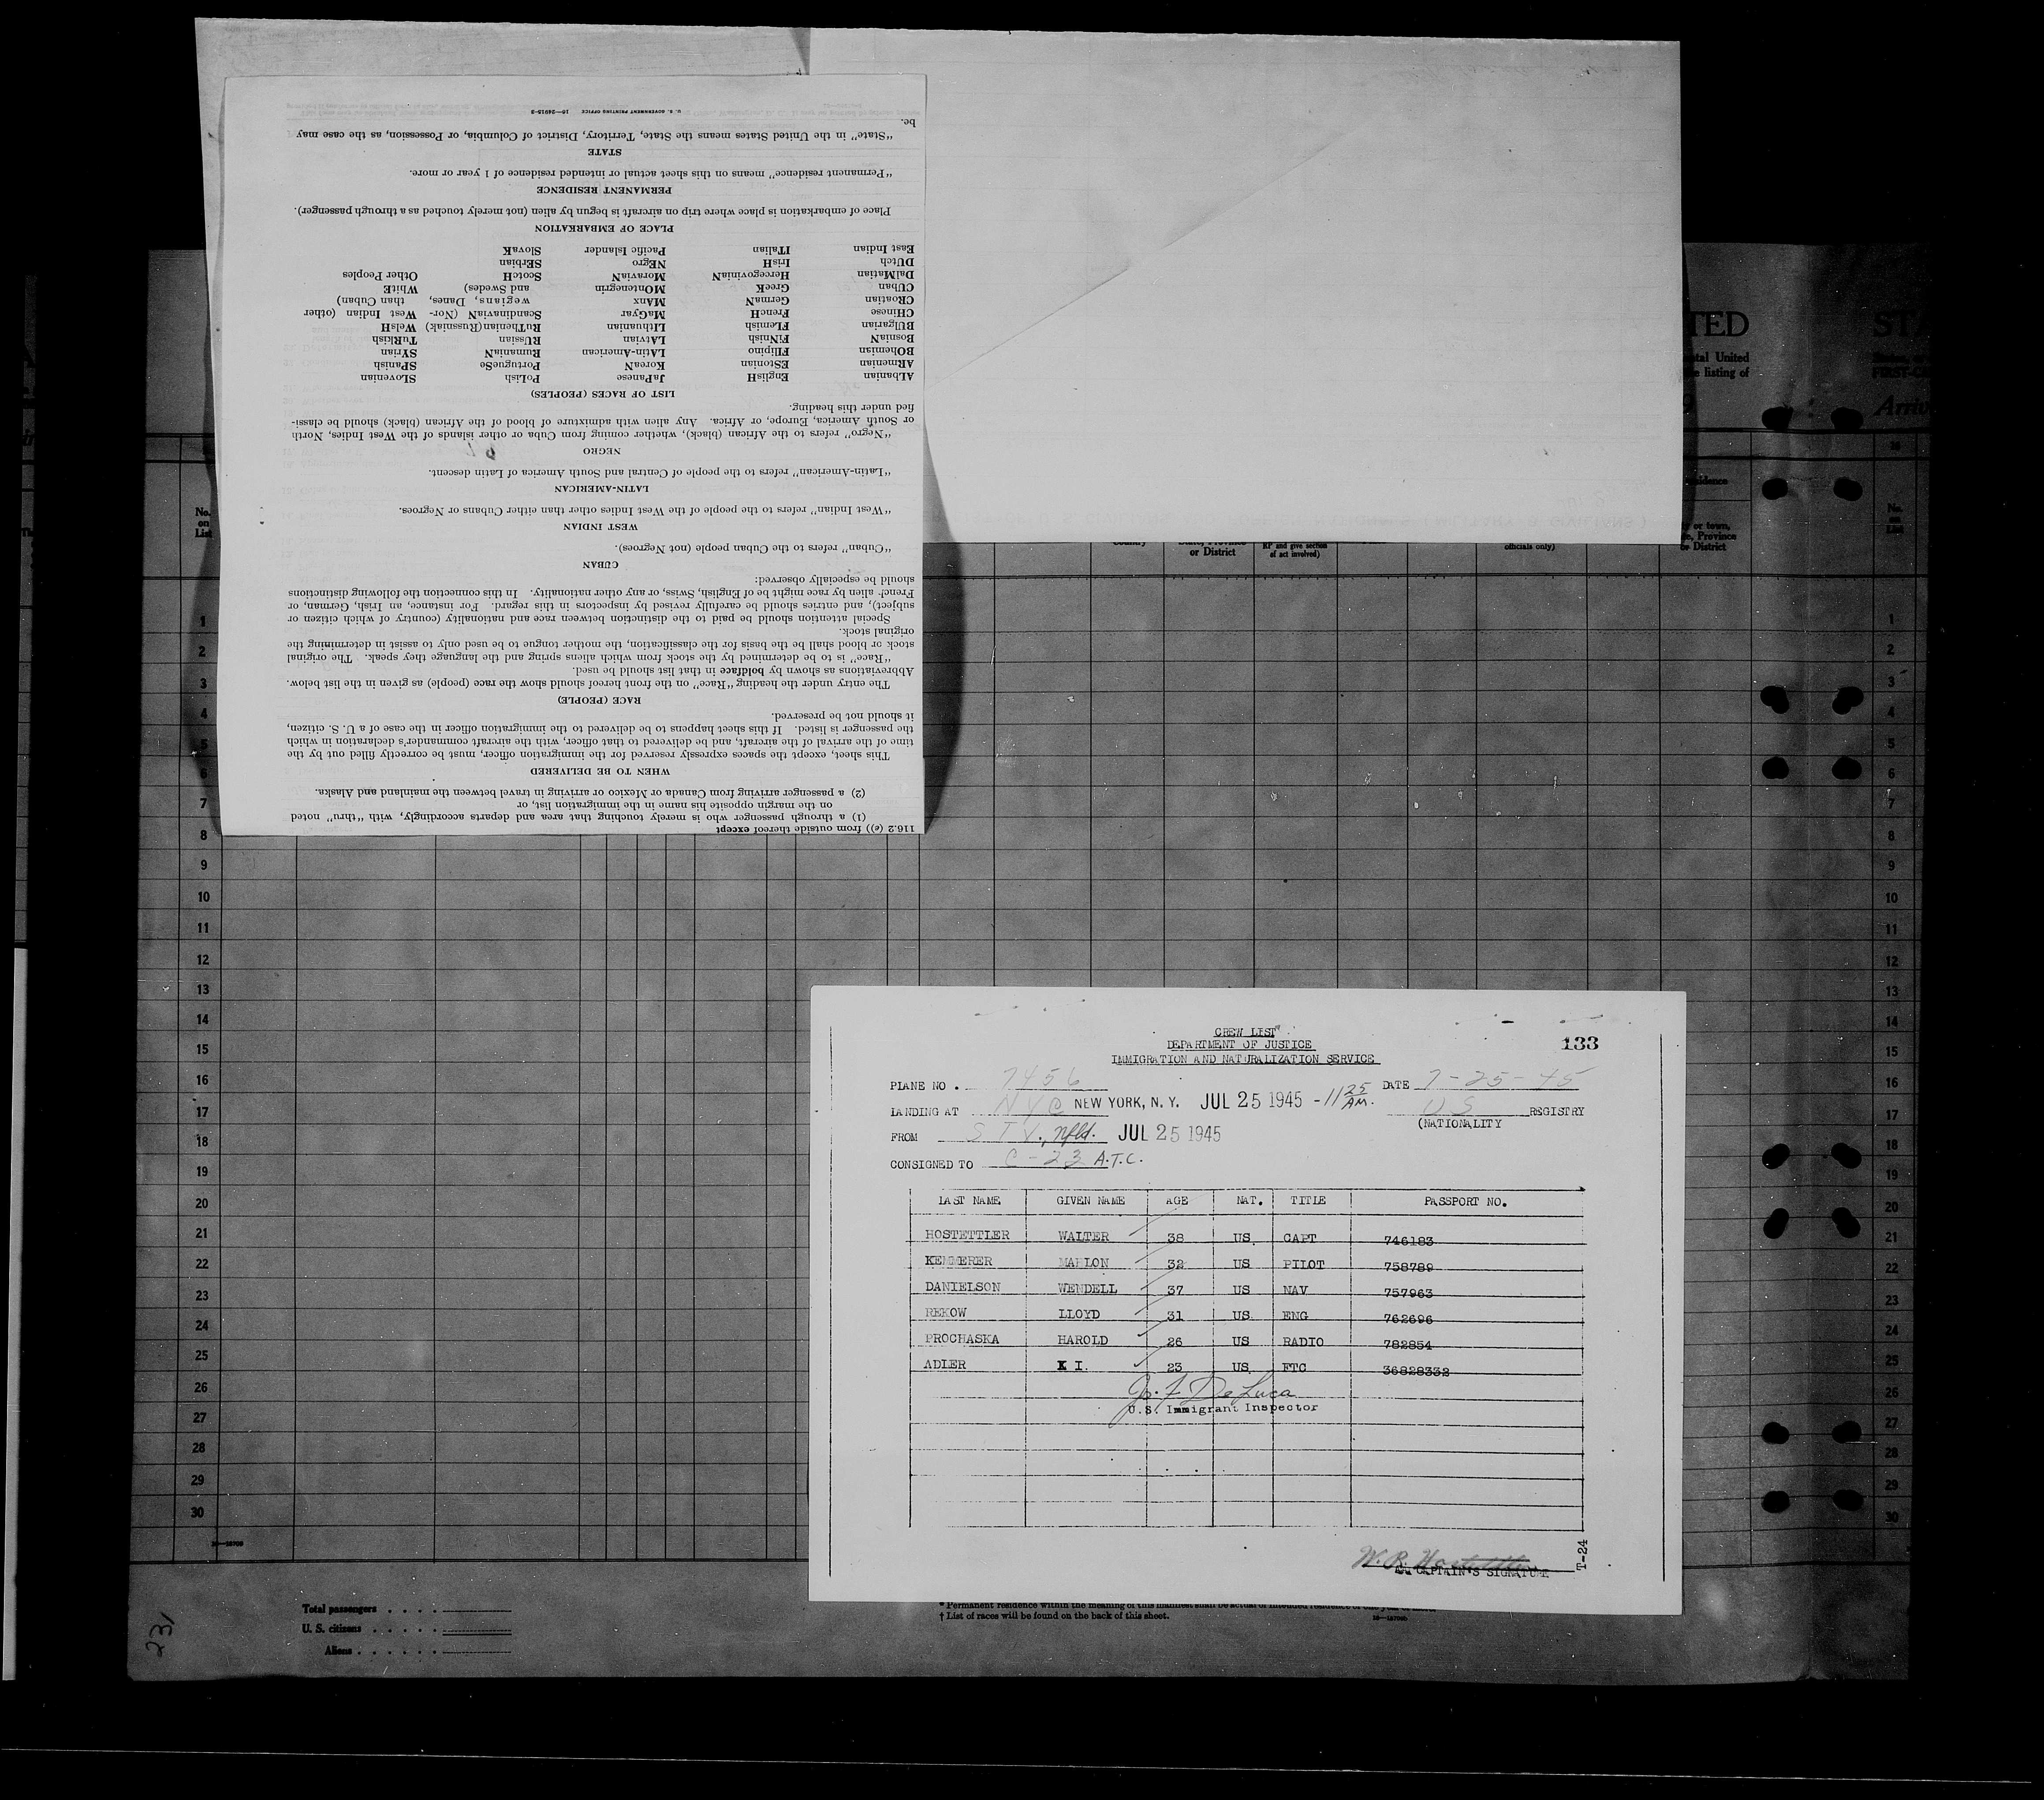 116.2 (e)) from outside thereof except
(1) a through passenger who is merely touching that area and departs accordingly, with "thru" noted
on the margin opposite his name in the immigration list, or
(2) a passenger arriving from Canada or Mexico or arriving in travel between the mainland and Alaska.
WHEN TO BE DELIVERED
This sheet, except the spaces expressly reserved for the immigration officer, must be correctly filled out by the
time of the arrival of the aircraft, and be delivered to that officer, with the aircraft commander's declaration in which
the passenger is listed. If this sheet happens to be delivered to the immigration officer in the case of a U. S. citizen,
it should not be preserved.
RACE (PEOPLE)
The entry under the heading "Race" on the front hereof should show the race (people) as given in the list below.
Abbreviations as shown by boldface in that list should be used.
"Race" is to be determined by the stock from which aliens spring and the language they speak. The original
stock or blood shall be the basis for the classification, the mother tongue to be used only to assist in determining the
original stock.
Special attention should be paid to the distinction between race and nationality (country of which citizen or
subject), and entries should be carefully revised by inspectors in this regard. For instance, an Irish, German, or
French alien by race might be of English, Swiss, or any other nationality. In this connection the following distinctions
should be especially observed:
CUBAN
"Cuban" refers to the Cuban people (not Negroes).
WEST INDIAN
"West Indian" refers to the people of the West Indies other than either Cubans or Negroes.
LATIN-AMERICAN
"Latin-American" refers to the people of Central and South America of Latin descent.
NEGRO
"Negro" refers to the African (black), whether coming from Cuba or other islands of the West Indies, North
or South America, Europe, or Africa. Any alien with admixture of blood of the African (black) should be classi-
fied under this heading.
LIST OF RACES (PEOPLES)
ALbanian EnglisH JaPanese PoLish SLOvenian
ARmenian EStonian KoreaN PortugueSe SPanish
BOhemian FIlipino LAtin-American RumaniaN SYrian
BosniaN FiNnish LAtvian RUssian TuRkish
BUlgarian FLemish LIthuanian RuThenian (Russniak) WelsH
CHinese FrencH MaGyar ScandinaviaN (Nor- West Indian (other
CRoatian GermaN MAnx wegians, Danes, than Cuban)
CUban GreeK MOntenegrin and Swedes) WhitE
DalMatian HercegoviniaN MoraviaN ScotcH Other Peoples
DUtch IrisH NEgro SErbian
East Indian ITalian Pacific Islander SlovaK
PLACE OF EMBARKATION
Place of embarkation is place where trip on aircraft is begun by alien (not merely touched as a through passenger).
PERMANENT RESIDENCE
"Permanent residence" means on this sheet actual or intended residence of 1 year or more.
STATE
"State" in the United States means the State, Territory, District of Columbia, or Possession, as the case may
be.
U. S. GOVERNMENT PRINTING OFFICE 16—24915-2
TED
STA
ntal United
e listing of
FIRST-C
Arriv
16
idence
No.
on
List
Country
State, Province
or District
RP and give section
of act involved)
officials only)
or town,
e, Province
or District
No.
on
List
1 1
2 2
3 3
4 4
5 5
6 6
7 7
8 8
9 9
10 10
11 11
12 12
13 13
14 14
15 15
16 16
17 17
18 18
19 19
20 20
21 21
22 22
23 23
24 24
25 25
26 26
27 27
28 28
29 29
30 30
CREW LIST
133
DEPARTMENT OF JUSTICE
IMMIGRATION AND NATURALIZATION SERVICE
PLANE NO. 7456 DATE 7-25-45
LANDING AT NYC NEW YORK, N. Y. JUL 25 1945 -11 25 AM. US REGISTRY
(NATIONALITY
FROM STV., Nfld. JUL 25 1945
CONSIGNED TO C-23 A.T.C.
LAST NAME GIVEN NAME AGE NAT. TITLE PASSPORT NO.
HOSTETTLER WALTER 38 US CAPT 746183
KEMMERER MAHLON 32 US PILOT 758789
DANIELSON WENDELL 37 US NAV 757963
REKOW LLOYD 31 US ENG 762696
PROCHASKA HAROLD 26 US RADIO 782854
ADLER K I. 23 US FTC 36828332
Jo. F. DeLuca
U.S. Immigrant Inspector
W. R. Hostettler
CAPTAIN'S SIGNATURE
T-24
Total passengers
U. S. citizens
Aliens
* Permanent residence within the meaning of this manifest shall be actual or intended residence of one year or more.
† List of races will be found on the back of this sheet.
231